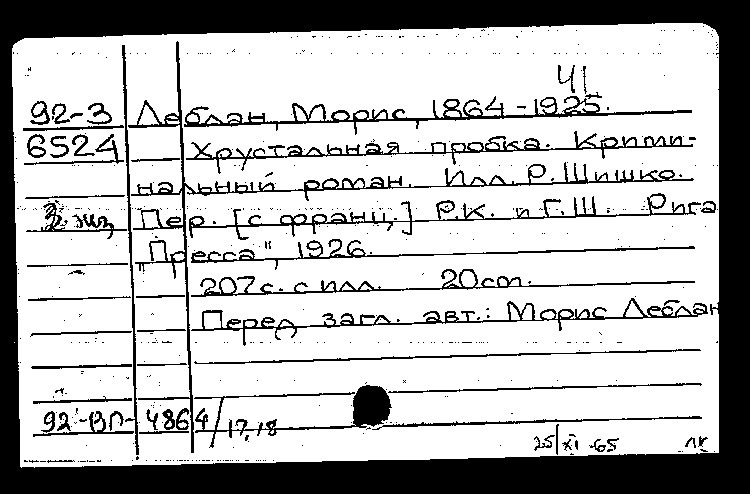 41
92-3 Леблан, Морис, 1864-1925.
6524 Хрустальная пробка. Крими-
нальный роман. Илл. Р. Шишко.
3 экз Пер. [с франц.] Р.К. и Г.Ш. Рига
„Пресса", 1926.
207 с. с илл. 20 cm.
Перед загл. авт.: Морис Леблан
92-ВП-4864/17,18
25/XI-65 лк